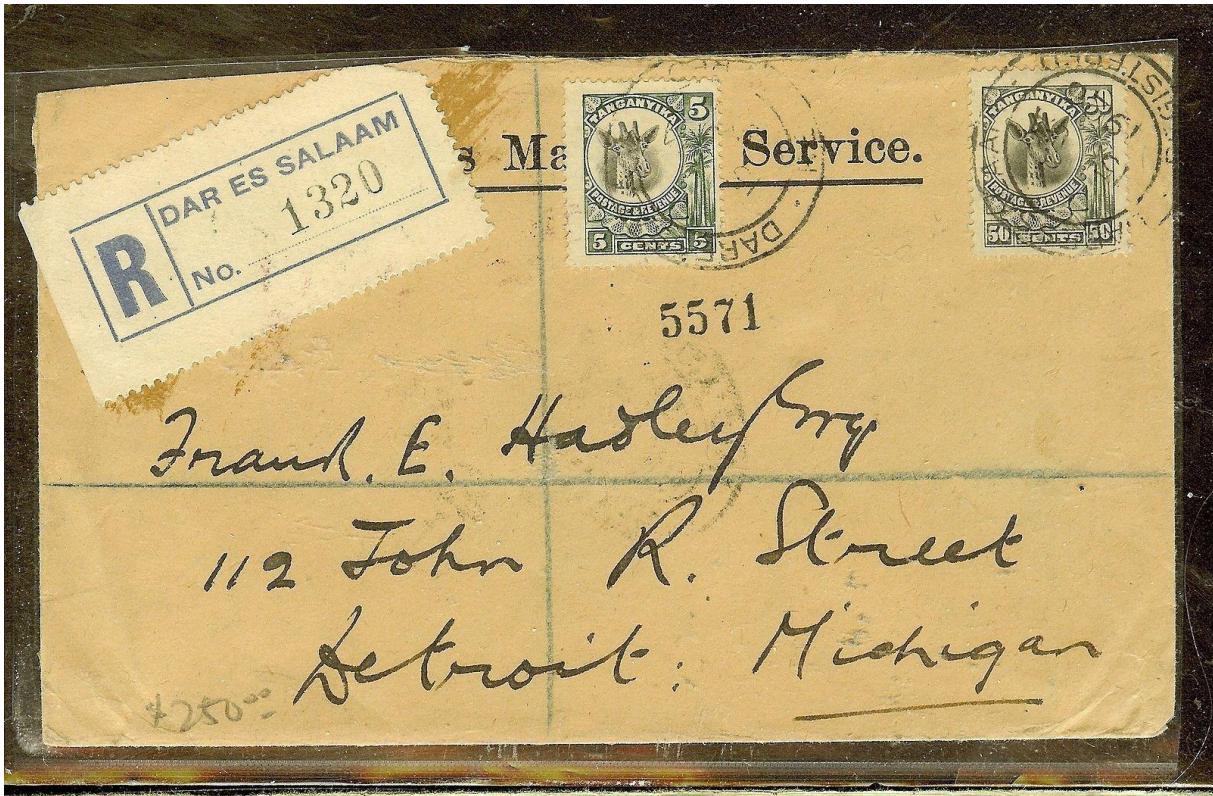 R
DAR ES SALAAM
No. 1320
s Ma Service.
TANGANYIKA
5
POSTAGE & REVENUE
5 CENTS 5
DAR
TANGANYIKA
50
POSTAGE & REVENUE
50 CENTS 50
5571
Frank. E. Hadley Esq.
112 John R. Street
Detroit. Michigan
$250.00